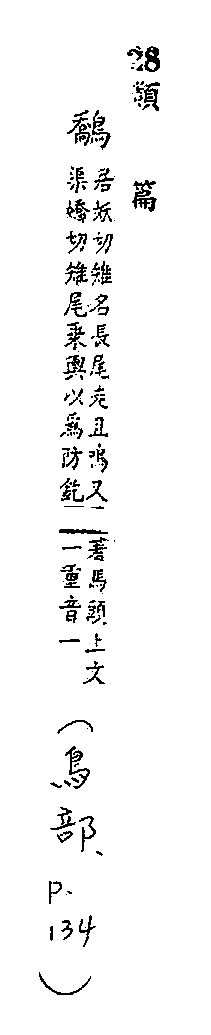 28 類篇
鷮
居妖切雉名長尾走且鳴又
渠嬌切雉尾乗輿以爲防釳
著馬頭上文
一重音一
(鳥部、p.134)